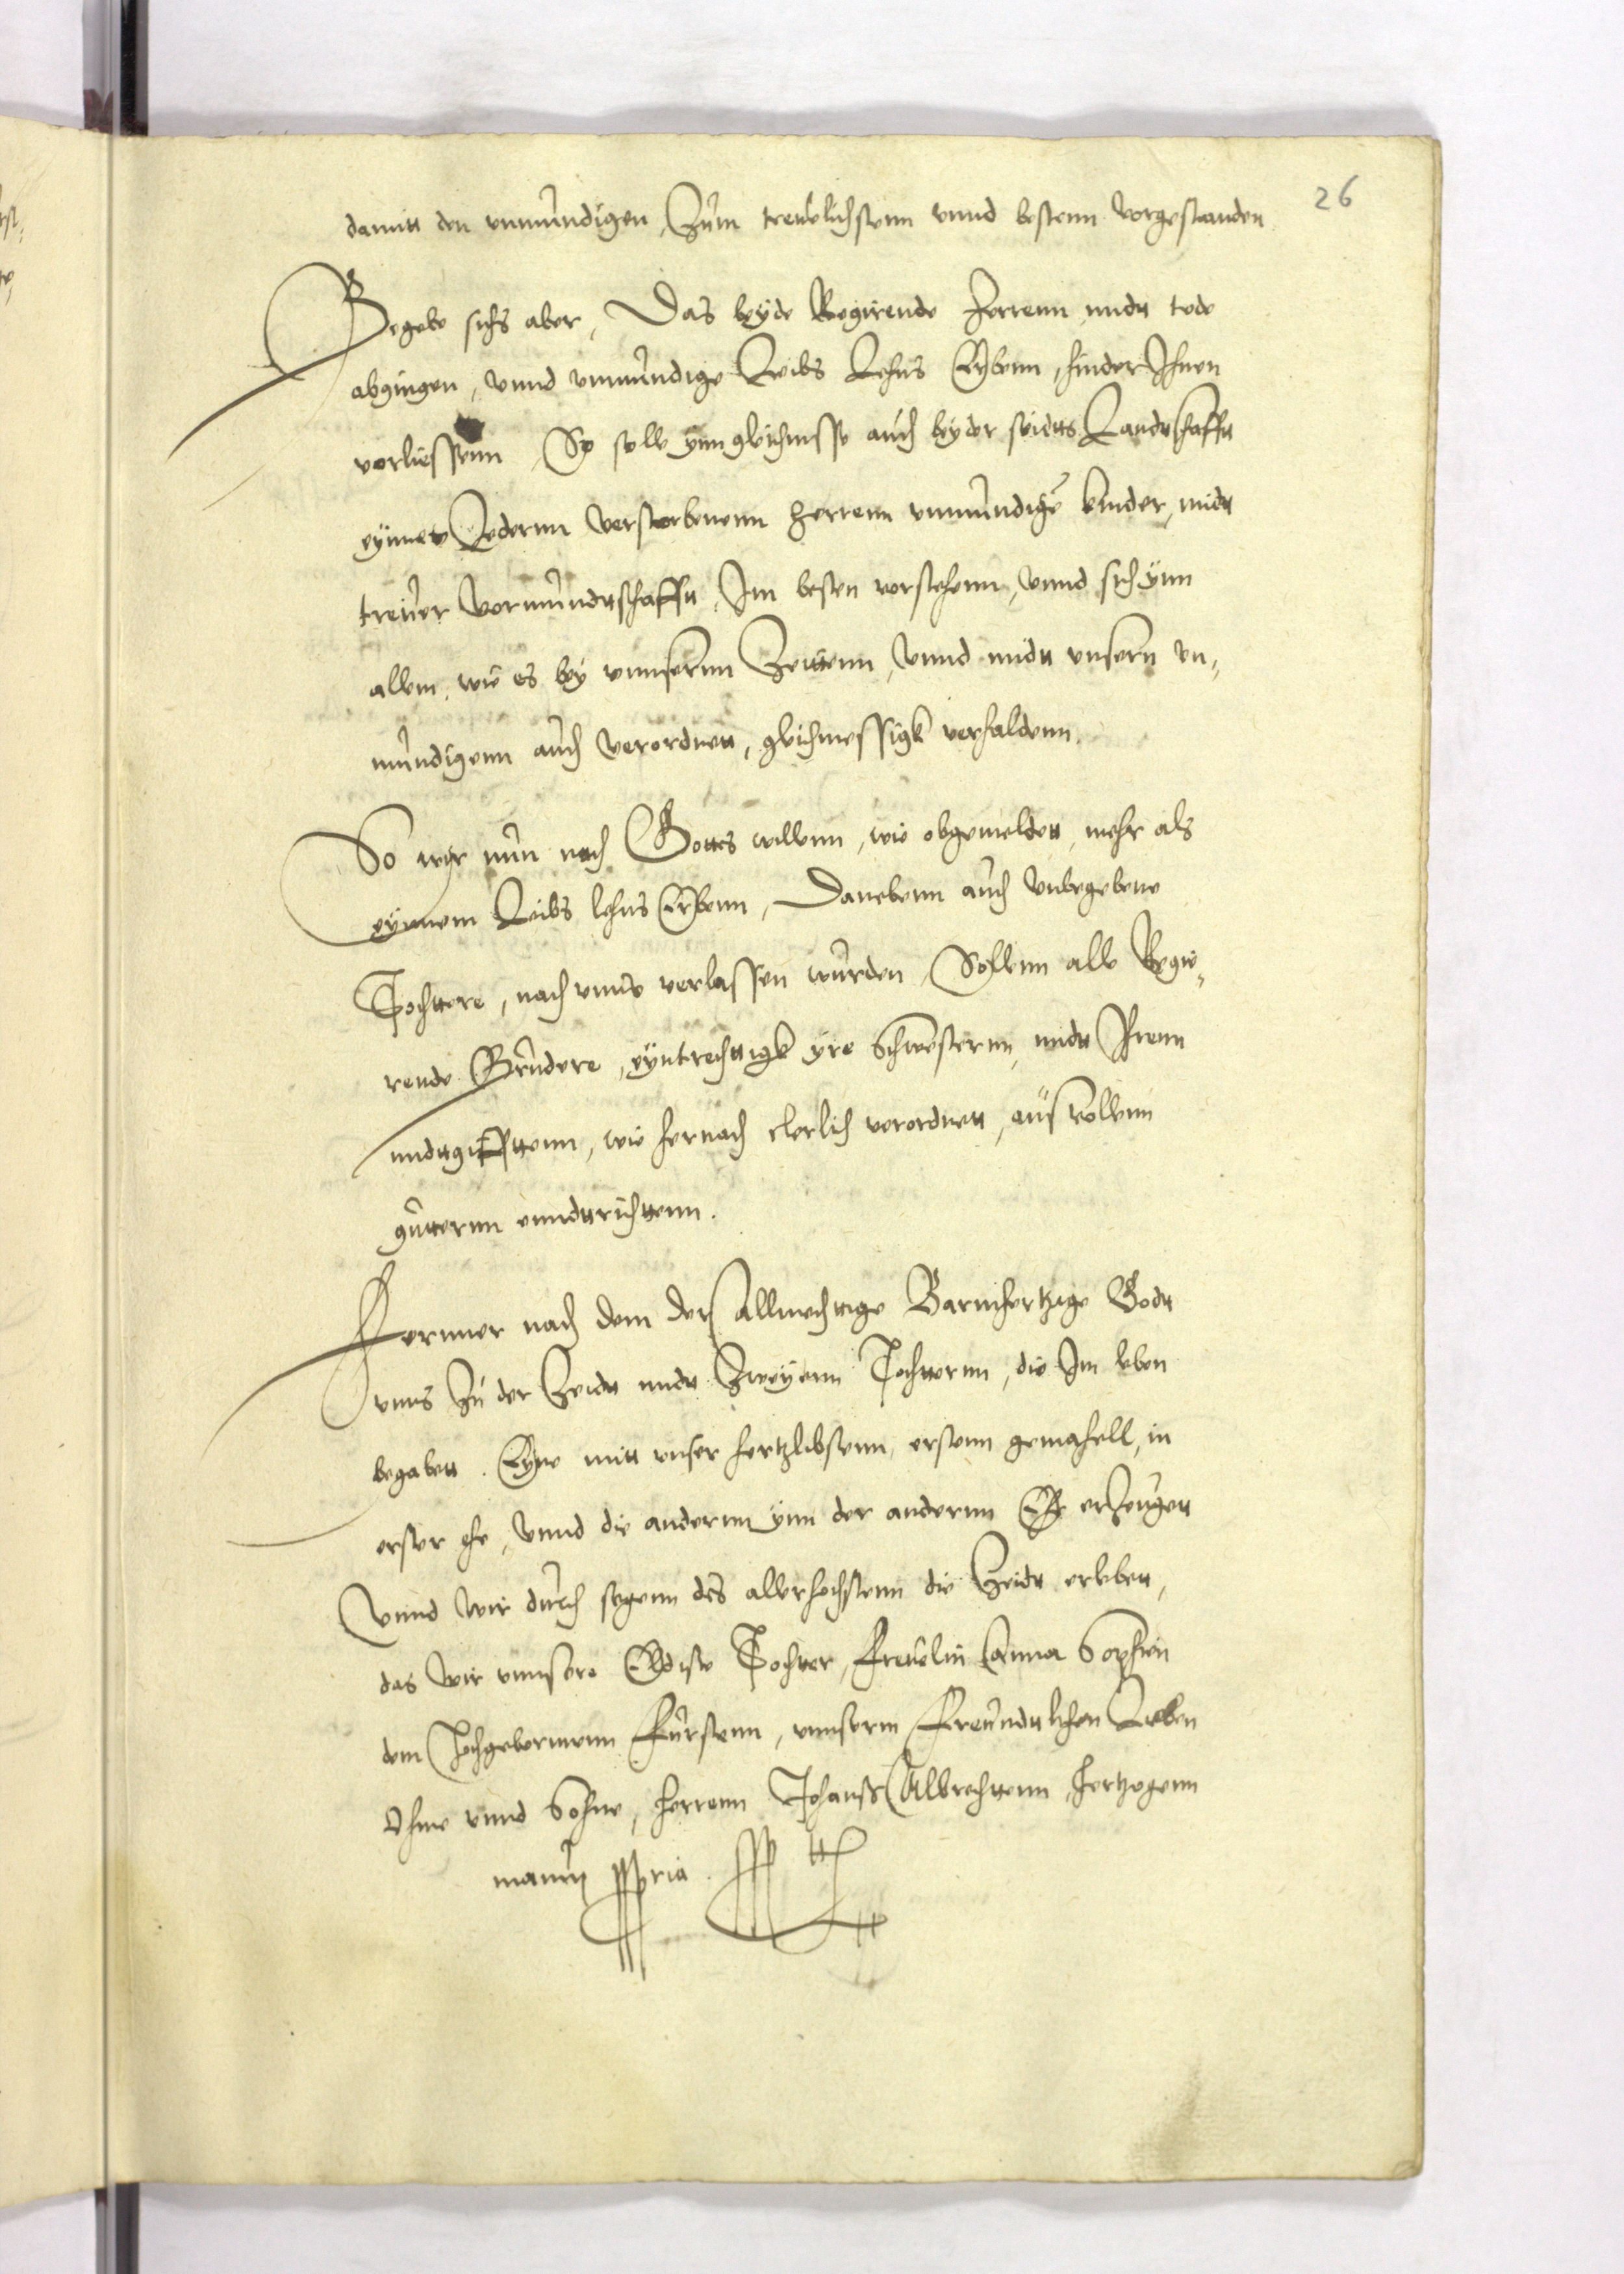 26
damitt den unmundigen, Zum treulichstenn unnd bestenn vorgestanden
Begebe sichs aber, Das beyde Regirende Herrenn midtt tode
abgingen, unnd unmundige Leibs Lehns Erbenn, hinder Ihnen
vorliessenn, So solle ynn gleichnisse auch beyder seidtts Landtschafftt
eynnes Jedernn verstorbenenn Herrenn unmundige kinder, midtt
treuer vormundttschafftt, Im besten vorstehenn, unnd sich ynn
allem, wie es bey unnsernn Zeittenn, unnd midtt unsern un,
mundigenn auch verordnett, gleichmessigk verhaldenn.
So wir nun nach Gottes willenn, wie obgemeldett, mehr als
eynnem Leibs lehns Erbenn, Danebenn auch unbegebene
Tochttere, nach unns verlassen wurden, Sollenn alle Regie,
rende Bruedere, eyntrechttigk yre Schwesternn, midtt Ihrenn
midttgifttenn, wie hernach clerlich verordnett, aus vollenn
gutternn enndttrichttenn.
Fernner nach dem der Allmechttige Barmhertzige Godtt
unns Zu der Zeidtt midtt Zweyenn Tochternn, die Im leben
begabett. Eyne mitt unser hertzlibstenn, erstenn gemahell, in
erster ehe, unnd die andernn ynn der andernn Ehe erzeugett
Unnd wir durch segenn des allerhochstenn die Zeidtt erlebett,
das wir unnsere Eldiste Tochter, Freuelin Anna Sophien
dem Hochgebornnenn Furstenn, unnserm Freundttlichen Lieben
Ohme unnd Sohne, Herrenn Johanns Albrechttenn, Hertzogenn
manu ppria